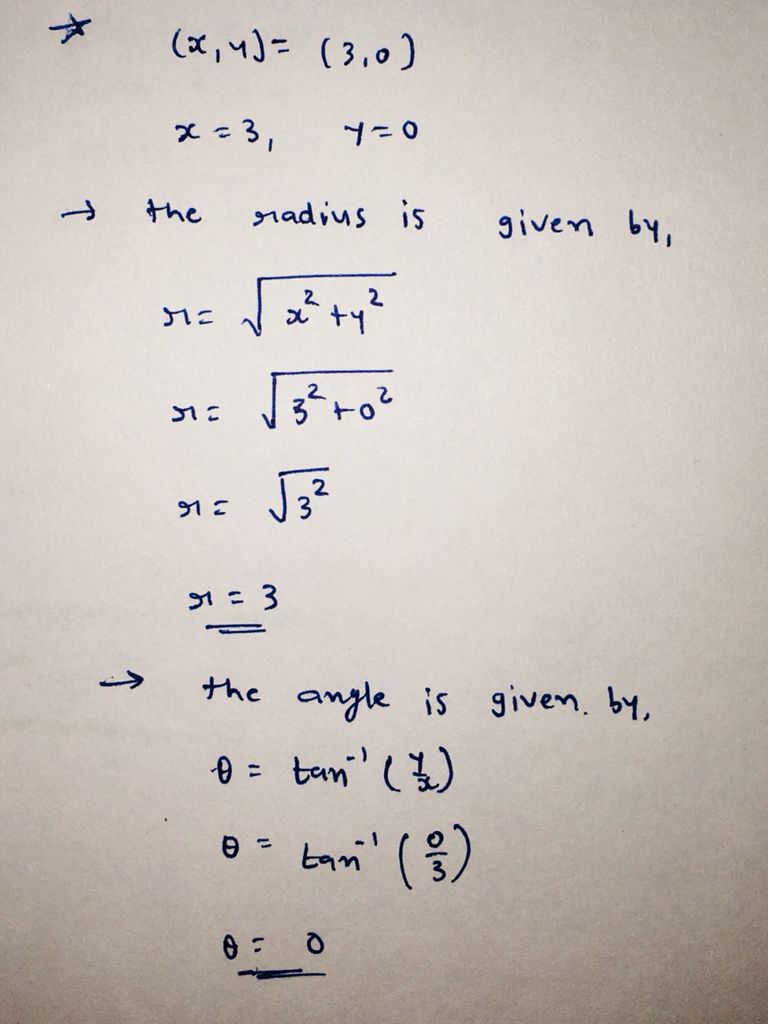 ★ (x,y) = (3,0)
x = 3, y = 0
→ the radius is given by,
r = √(x² + y²)
r = √(3² + 0²)
r = √3²
r = 3
→ the angle is given. by,
θ = tan⁻¹ (y/x)
θ = tan⁻¹ (0/3)
θ = 0